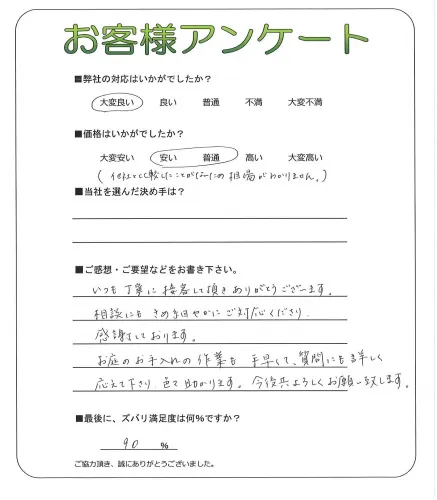 お客様アンケート
■弊社の対応はいかがでしたか？
大変良い 良い 普通 不満 大変不満
■価格はいかがでしたか？
大変安い 安い 普通 高い 大変高い
(他社と比較したことがないため相場がわかりません。)
■当社を選んだ決め手は？
■ご感想・ご要望などをお書き下さい。
いつも丁寧に接客して頂きありがとうございます。
相談にもきめ細やかにご対応くださり、
感謝しております。
お庭のお手入れの作業も手早くて、質問にも詳しく
応えて下さり、助かります。今後共よろしくお願い致します。
■最後に、ズバリ満足度は何%ですか？
90 %
ご協力頂き、誠にありがとうございました。